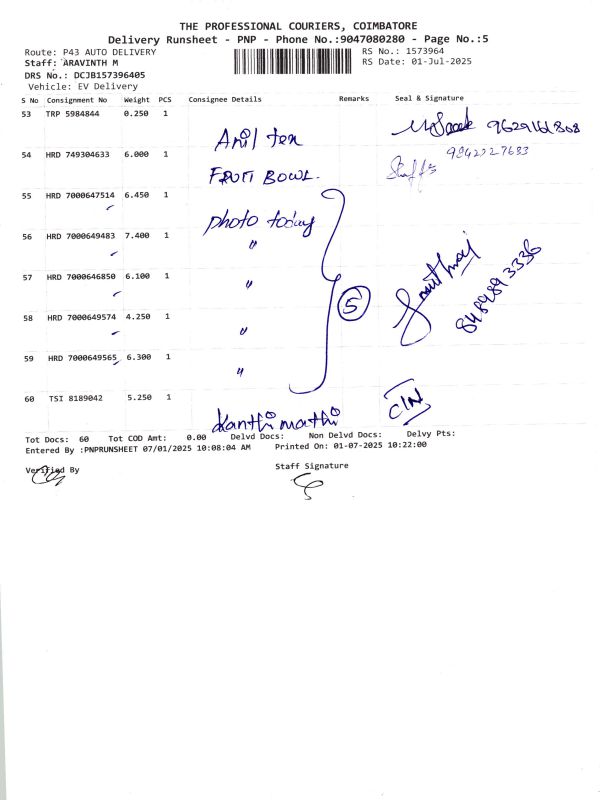 THE PROFESSIONAL COURIERS, COIMBATORE
Delivery Runsheet - PNP - Phone No.:9047080280 - Page No.:5
Route: P43 AUTO DELIVERY RS No.: 1573964
Staff: ARAVINTH M RS Date: 01-Jul-2025
DRS No.: DCJB157396405
Vehicle: EV Delivery
S No Consignment No Weight PCS Consignee Details Remarks Seal & Signature
53 TRP 5984844 0.250 1
Anil tex 9629161808
54 HRD 749304633 6.000 1 9842227683
FRUIT BOWL. Staffs
55 HRD 7000647514 6.450 1
photo today
56 HRD 7000649483 7.400 1 "
57 HRD 7000646850 6.100 1 "
5 8489893336
58 HRD 7000649574 4.250 1 "
59 HRD 7000649565 6.300 1 "
60 TSI 8189042 5.250 1
Kanthimathi C/N
Tot Docs: 60 Tot COD Amt: 0.00 Delvd Docs: Non Delvd Docs: Delvy Pts:
Entered By :PNPRUNSHEET 07/01/2025 10:08:04 AM Printed On: 01-07-2025 10:22:00
Verified By Staff Signature